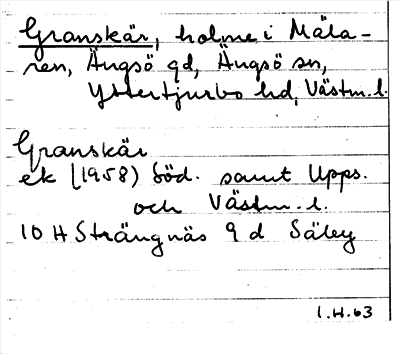 Granskär, holme i Mäla-
ren, Ängsö gd, Ängsö sn,
Yttertjurbo hd, Västm.l.
Granskär
ek (1958) Söd. samt Upps.
och Västm.l.
10 H Strängnäs 9 d Säley
1.H.63